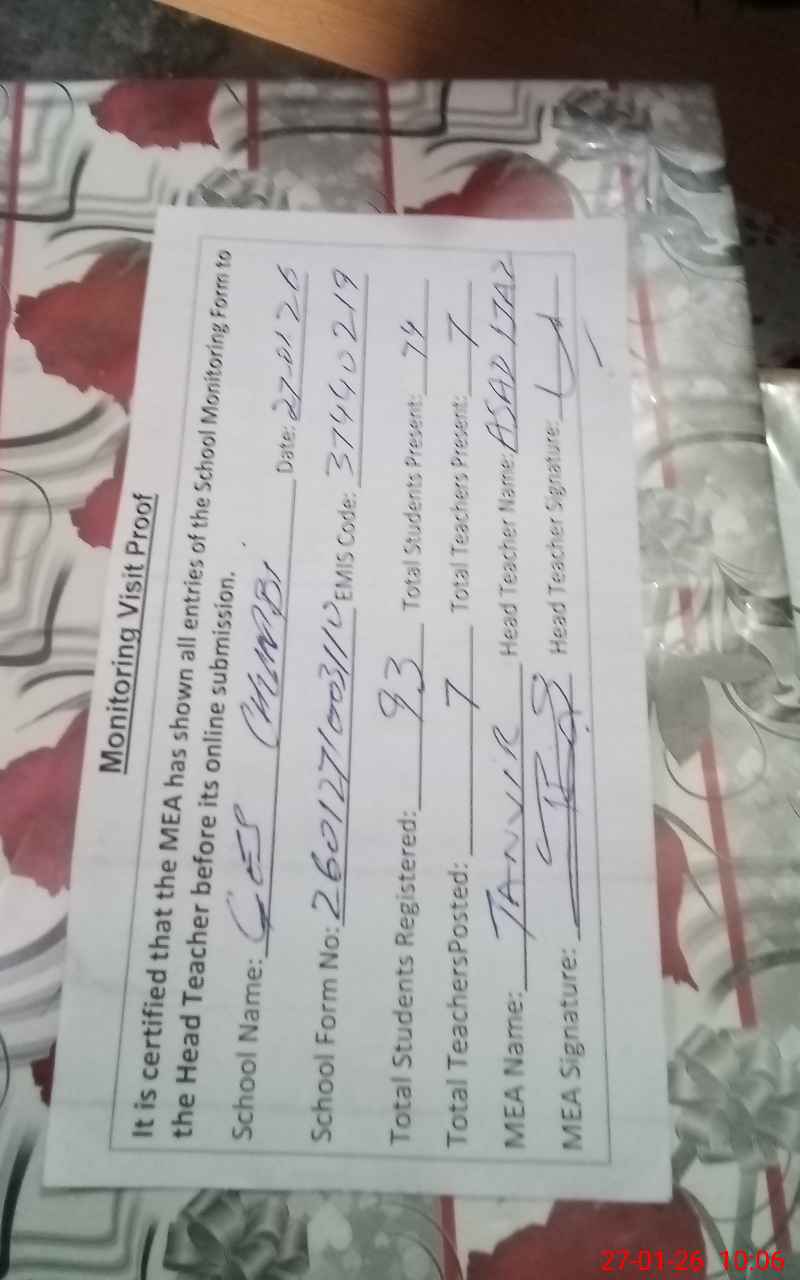 Monitoring Visit Proof
It is certified that the MEA has shown all entries of the School Monitoring Form to
the Head Teacher before its online submission.
School Name: GES Date: 27-01-26
School Form No: 2601271003110 EMIS Code: 37440219
Total Students Registered: 93 Total Students Present: 74
Total TeachersPosted: 7 Total Teachers Present: 7
MEA Name: TANVIR Head Teacher Name: ASAD
MEA Signature: Head Teacher Signature:
27-01-26 10:06